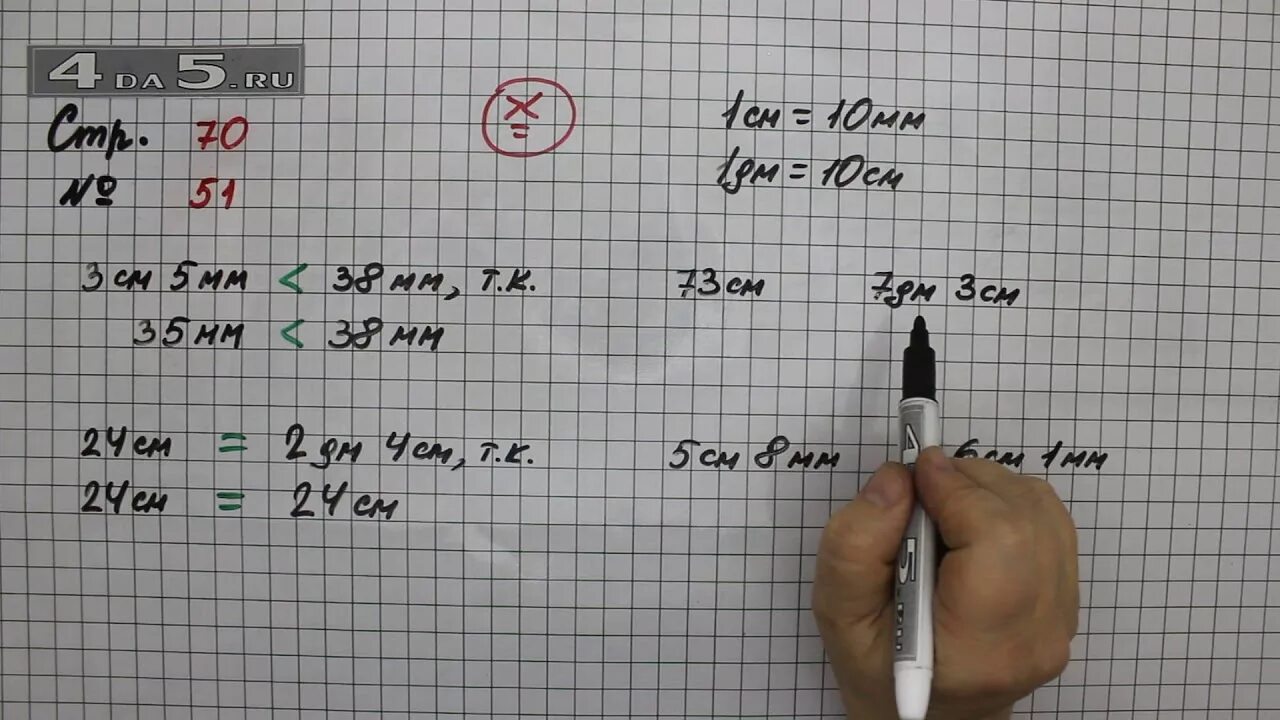 4DA5.RU
Стр. 70
№ 51
Ж
1см = 10мм
1дм = 10см
3см 5мм < 38мм, т.к.
35мм < 38мм
73см 7дм 3см
24см = 2дм 4см, т.к.
24см = 24см
5см 8мм 6см 1мм